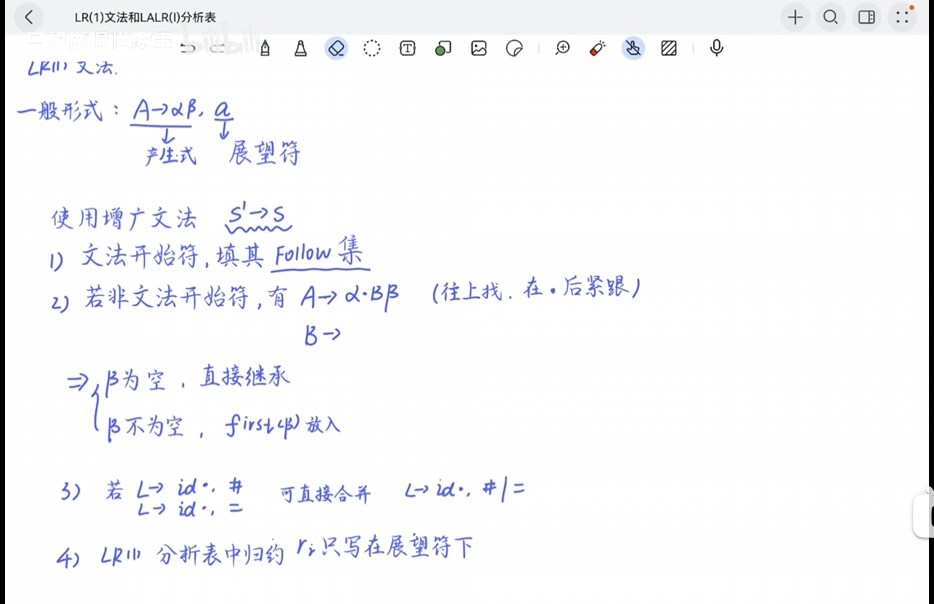 LR(1)文法和LALR(l)分析表
LR(1) 文法.
一般形式: A→αβ, a
产生式 展望符
使用增广文法 S'→S
1) 文法开始符, 填其 Follow 集
2) 若非文法开始符, 有 A→α·Bβ (往上找. 在·后紧跟)
B→
⇒ { β为空, 直接继承
β不为空, first(β) 放入
3) 若 L→id·, # 可直接合并 L→id·, #|=
L→id·, =
4) LR(1) 分析表中归约 ri 只写在展望符下